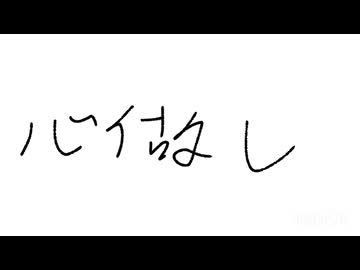 心做し